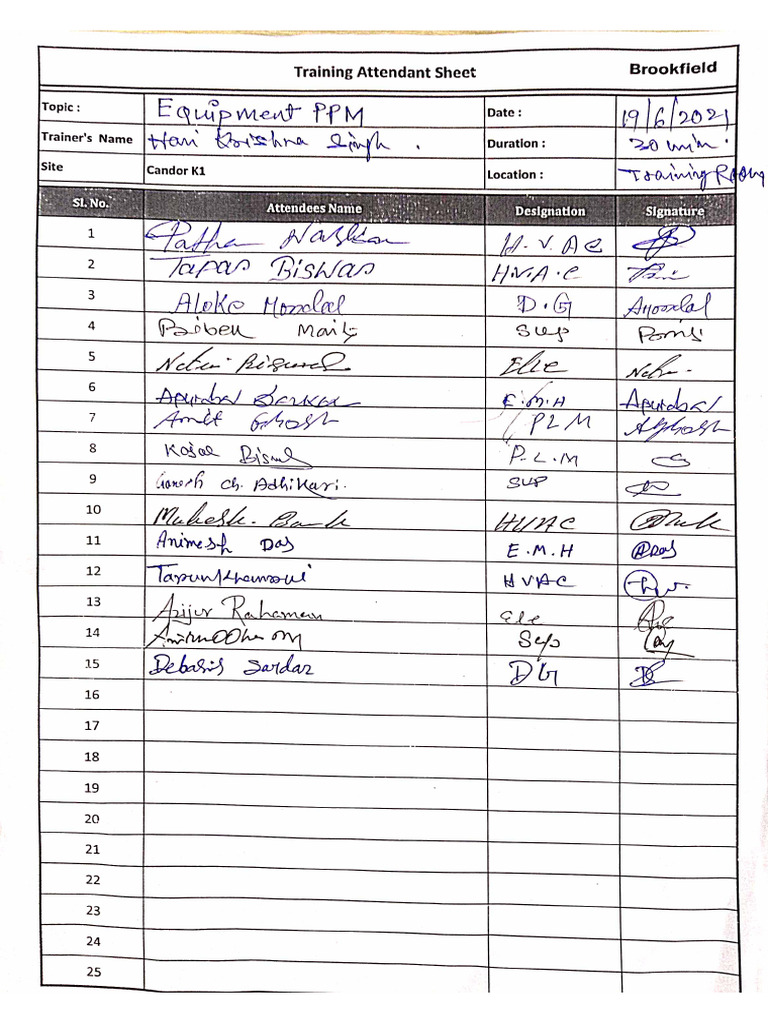 Training Attendant Sheet Brookfield
Topic : Equipment PPM Date : 19/6/2021
Trainer's Name Hari Krishna Singh . Duration : 30 min.
Site Candor K1 Location : Training Room
Sl. No. Attendees Name Designation Signature
1 H.V.A.C
2 Tapas Biswas H.V.A.C
3 Aloke Mondal D.G Amondal
4 Sup
5 Ele
6 Apurba Sarkar E.M.H Apurba
7 Amit Ghosh PLM AGhosh
8 Kajal P.L.M
9 Ganesh Ch. Adhikari. SUP
10 Mahesh HVAC
11 Animesh Das E.M.H @Das
12 HVAC
13 Azijur Rahaman ele
14 Sup
15 Debasis Sardar DG
16
17
18
19
20
21
22
23
24
25